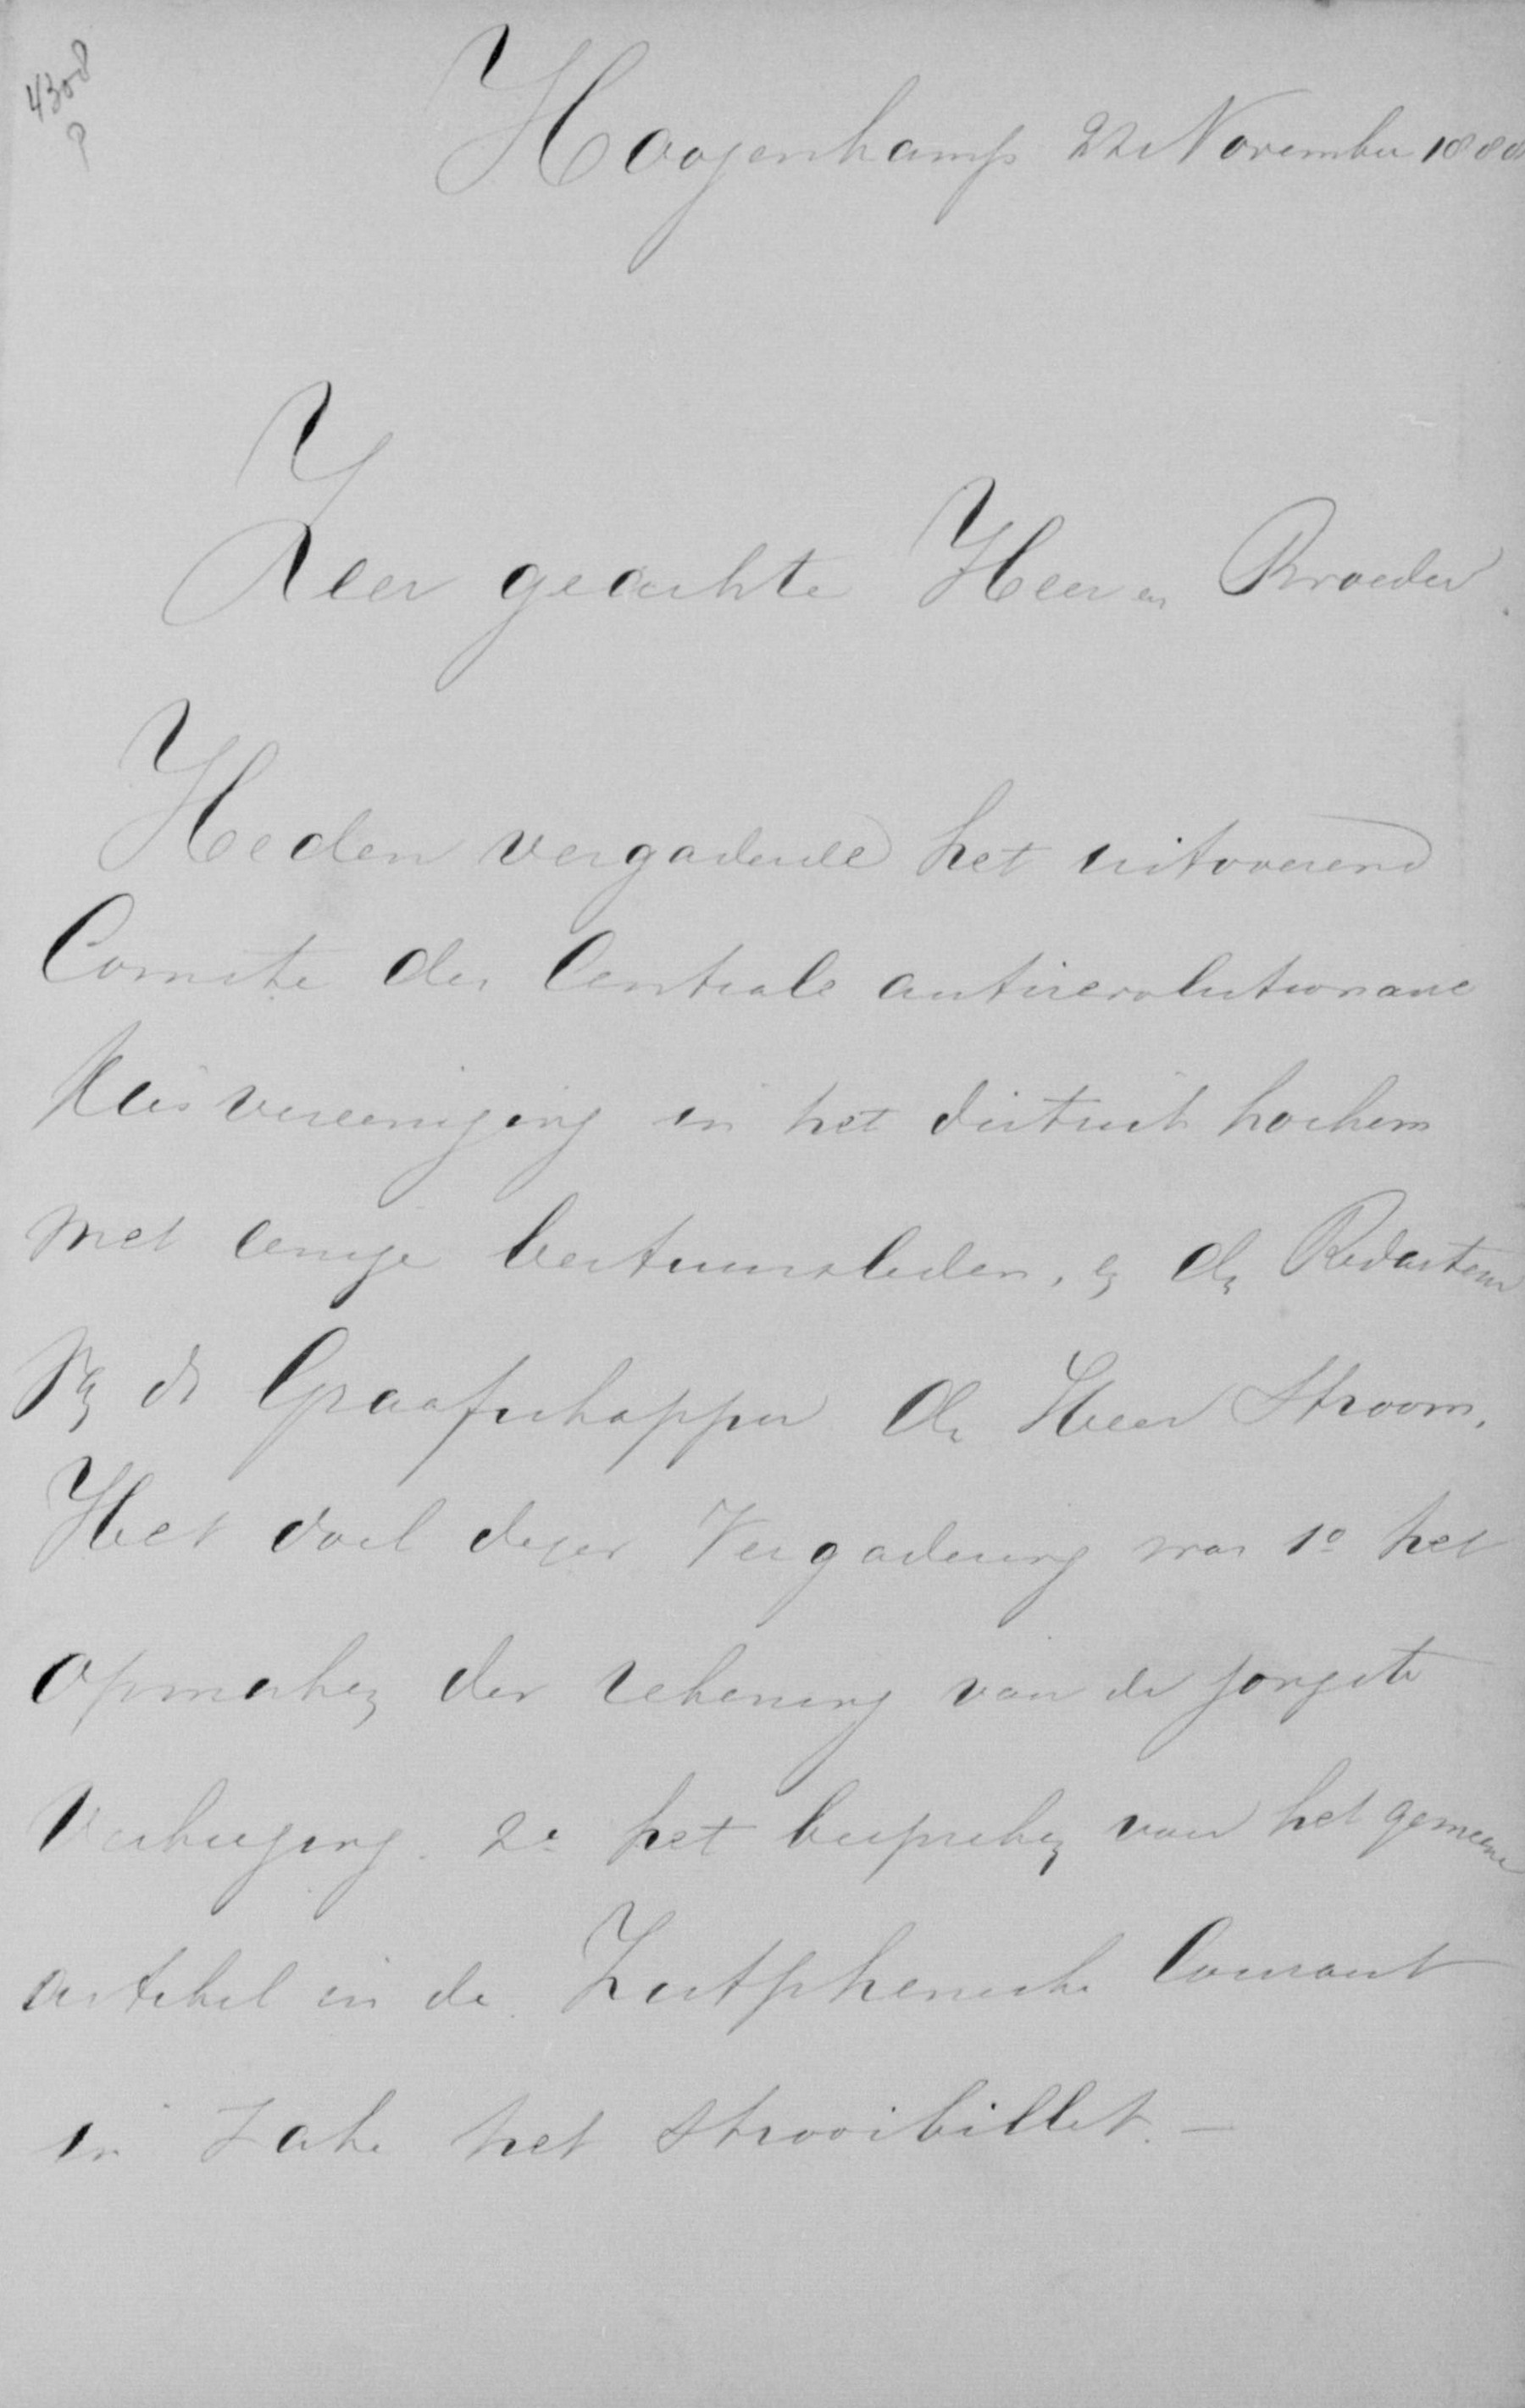 4308
P
Hoogenkamp 22 November 1888
Zeer geachte Heer en Broeder.
Heden vergaderde het uitvoerend
Comite der Centrale antirevolutionaire
Kiesvereeniging in het district Lochem
met eenige bestuursleden, en de Redacteur
van de Graafschapper de Heer Stroom.
Het doel dezer Vergadering was 1o het
opmaken der rekening van de jongste
Verkiezing. 2e het bespreken van het gemeene
artikel in de Zutphensche Courant
in zake het strooibillet. —